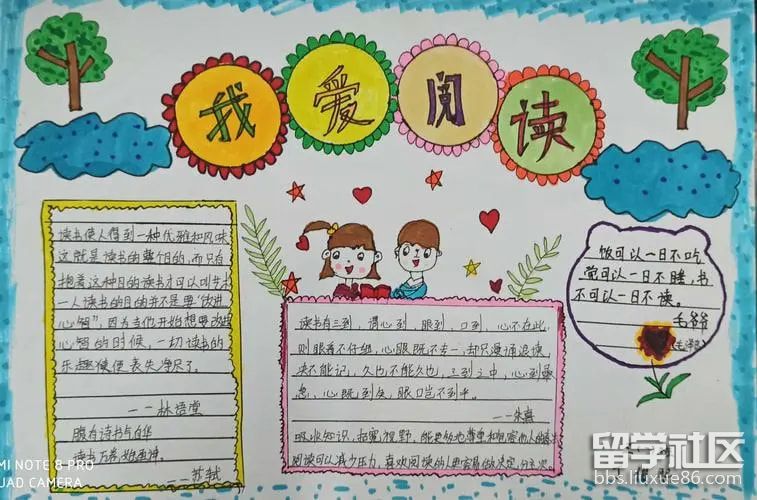 我爱阅读
读书使人得到一种优雅和风味
这就是读书的整个目的,而只有
抱着这种目的读书才可以叫艺术
一人读书的目的并不是要"改进
心智",因为当他开始想要改进
心智的时候,一切读书的
乐趣便丧失净尽了。
——林语堂
腹有诗书气自华
读书万卷始通神
——苏轼
读书有三到,谓心到,眼到,口到,心不在此,
则眼看不仔细,心眼既不专一,却只漫诵浪读,
决不能记,久也不能久也,三到之中,心到最
急,心既到矣,眼口岂不到乎。
——朱熹
吸收知识,拓宽视野,
阅读可以减少压力,喜欢阅读的人更容易做决定,
饭可以一日不吃,
觉可以一日不睡,书
不可以一日不读。
毛爷爷
MI NOTE 8 PRO
UAD CAMERA
留学社区
bbs.liuxue86.com